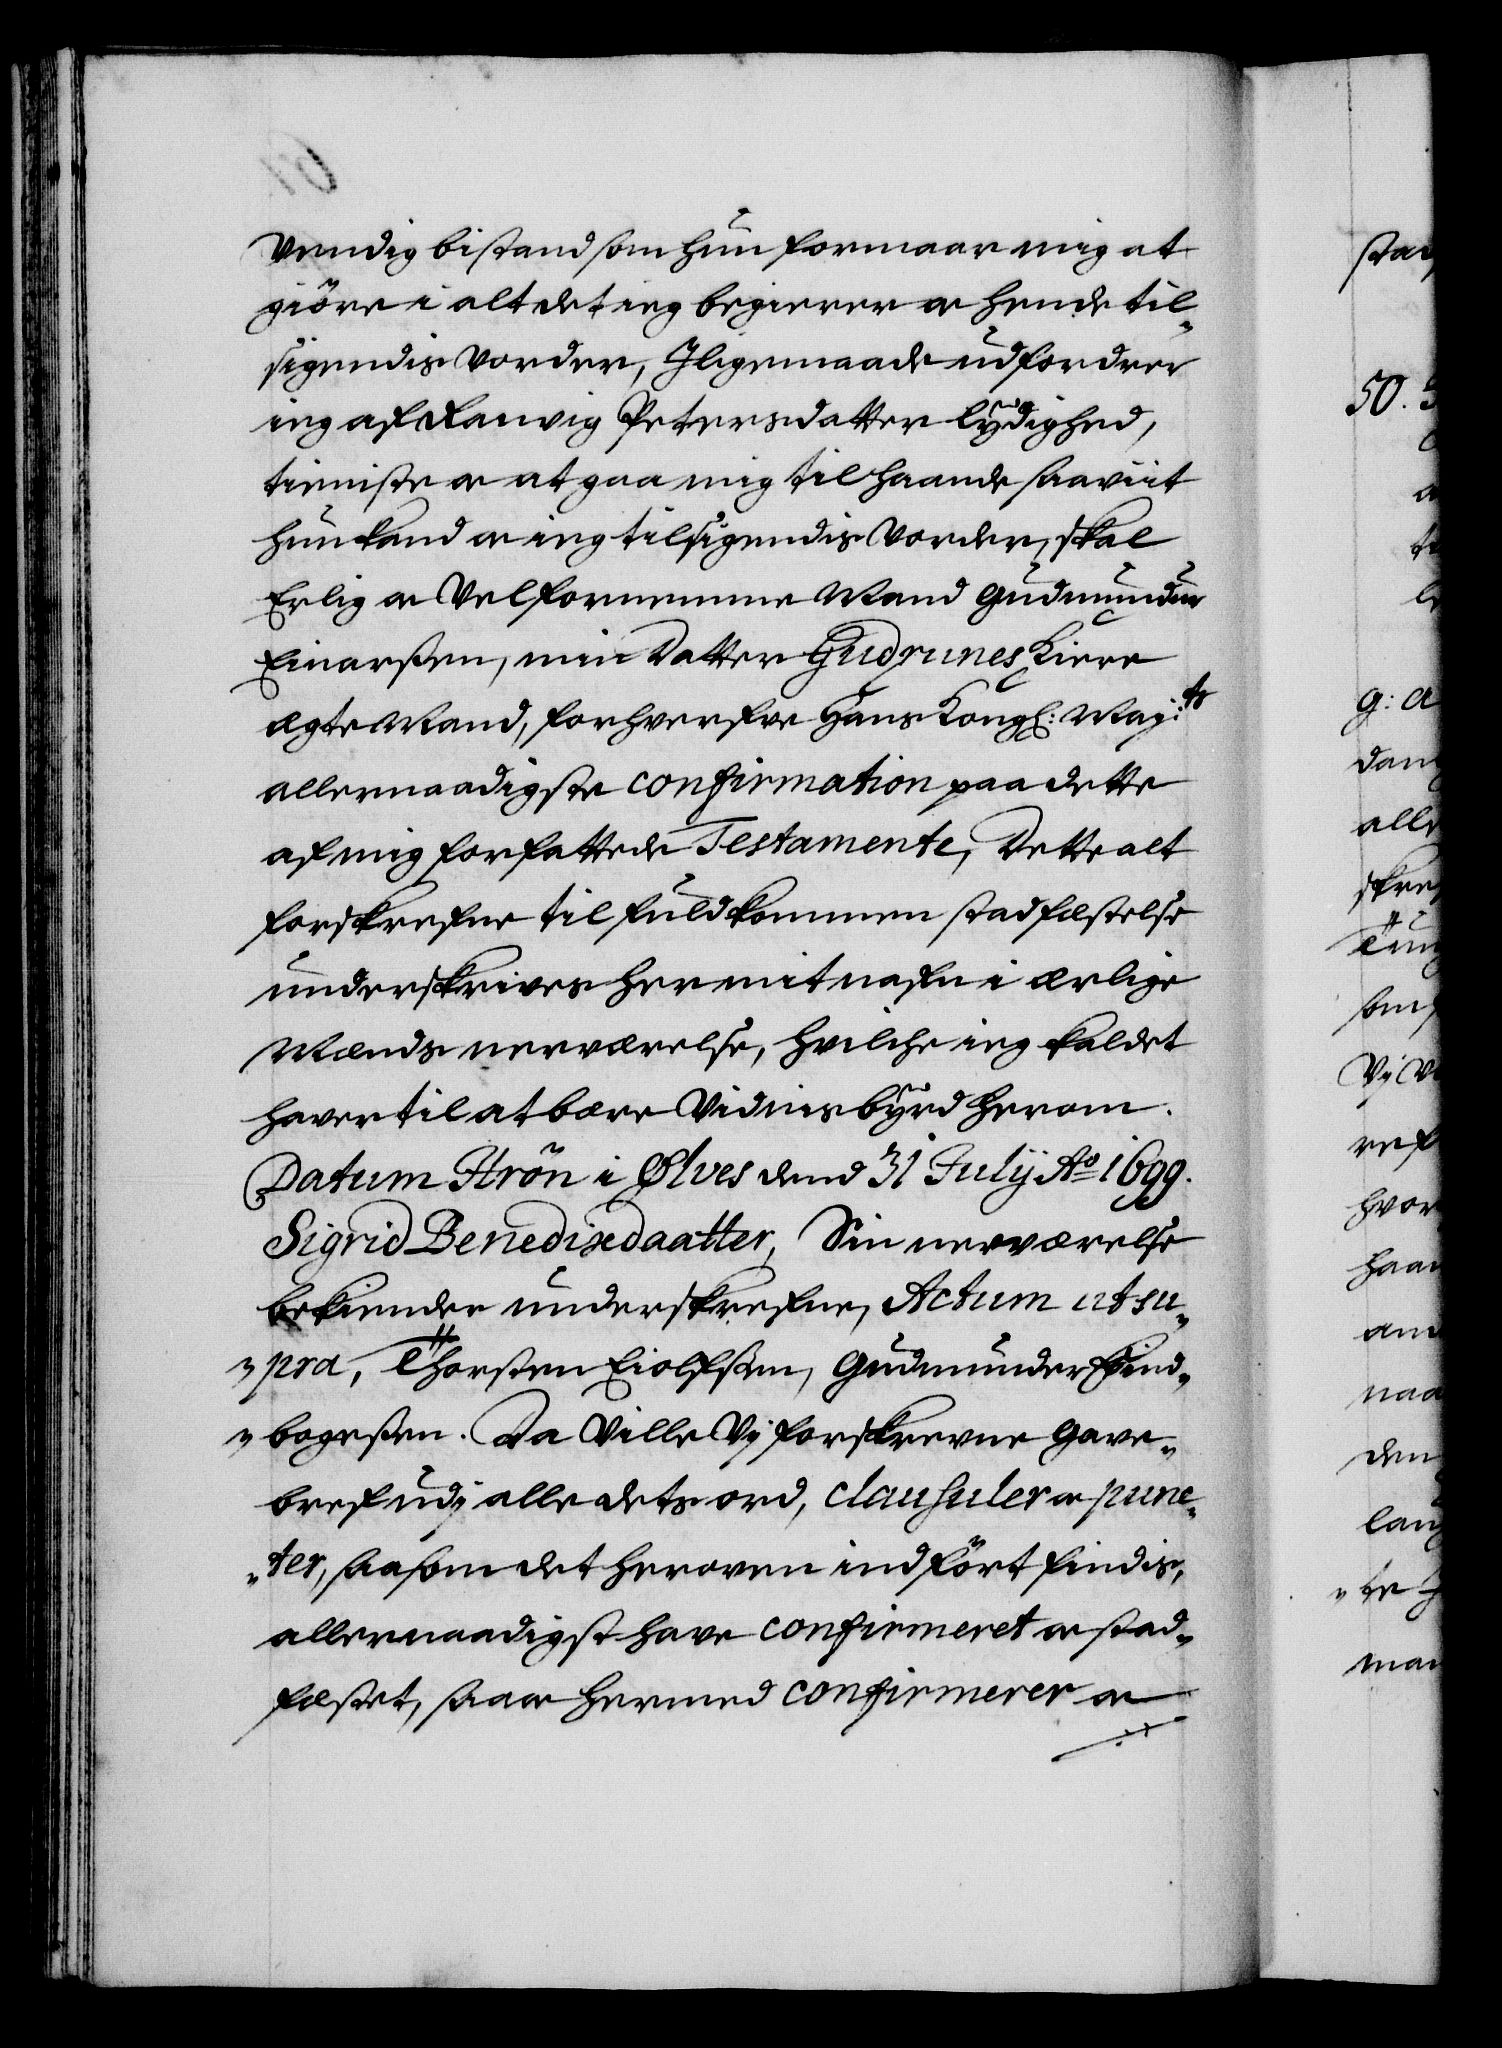 vendig bistand som hun formaar mig at
giöre i alt det ieg begierer oc hende til„
sigendis vorder, Iligemaade udfordrer
ieg af Ranvig Petersdatter lydighed,
tieniste oc at gaa mig til haande saaviit
hun kand oc ieg tilsigendis vorder, skal
Erlig oc Velfornemme Mand Gudmunder
Einarßen, min Datter Gudrunes Kiere
ægte Mand, forhverfve Hans Kongl: Maj:ts
allernaadigste confirmation paa dette
af mig forfattede Testamente, Dette alt
forskrefne til fuldkommen stadfæstelse
underskrives her mit nafn i ærlige
Mænds nerværelse, hvilche ieg kaldet
haver til at bære Vidnisbyrd herom.
Datum Hrön i Ølves dend 31 Julij Ao 1699.
Sigrid Benedixdaatter, Sin nerværelse
bekiender underskrefne, Actum ut su„
„pra, Thorsten Eiolfßen, Gudmunder Find„
„bogeßen. Da Ville Vj forskrevne Gave„
bref udj alle dets ord, clausuler oc punc„
„ter, saasom det heroven indfört findis,
allernaadigst have confirmeret oc stad„
fæstet, saa oc hermed confirmerer oc
50.
g: A